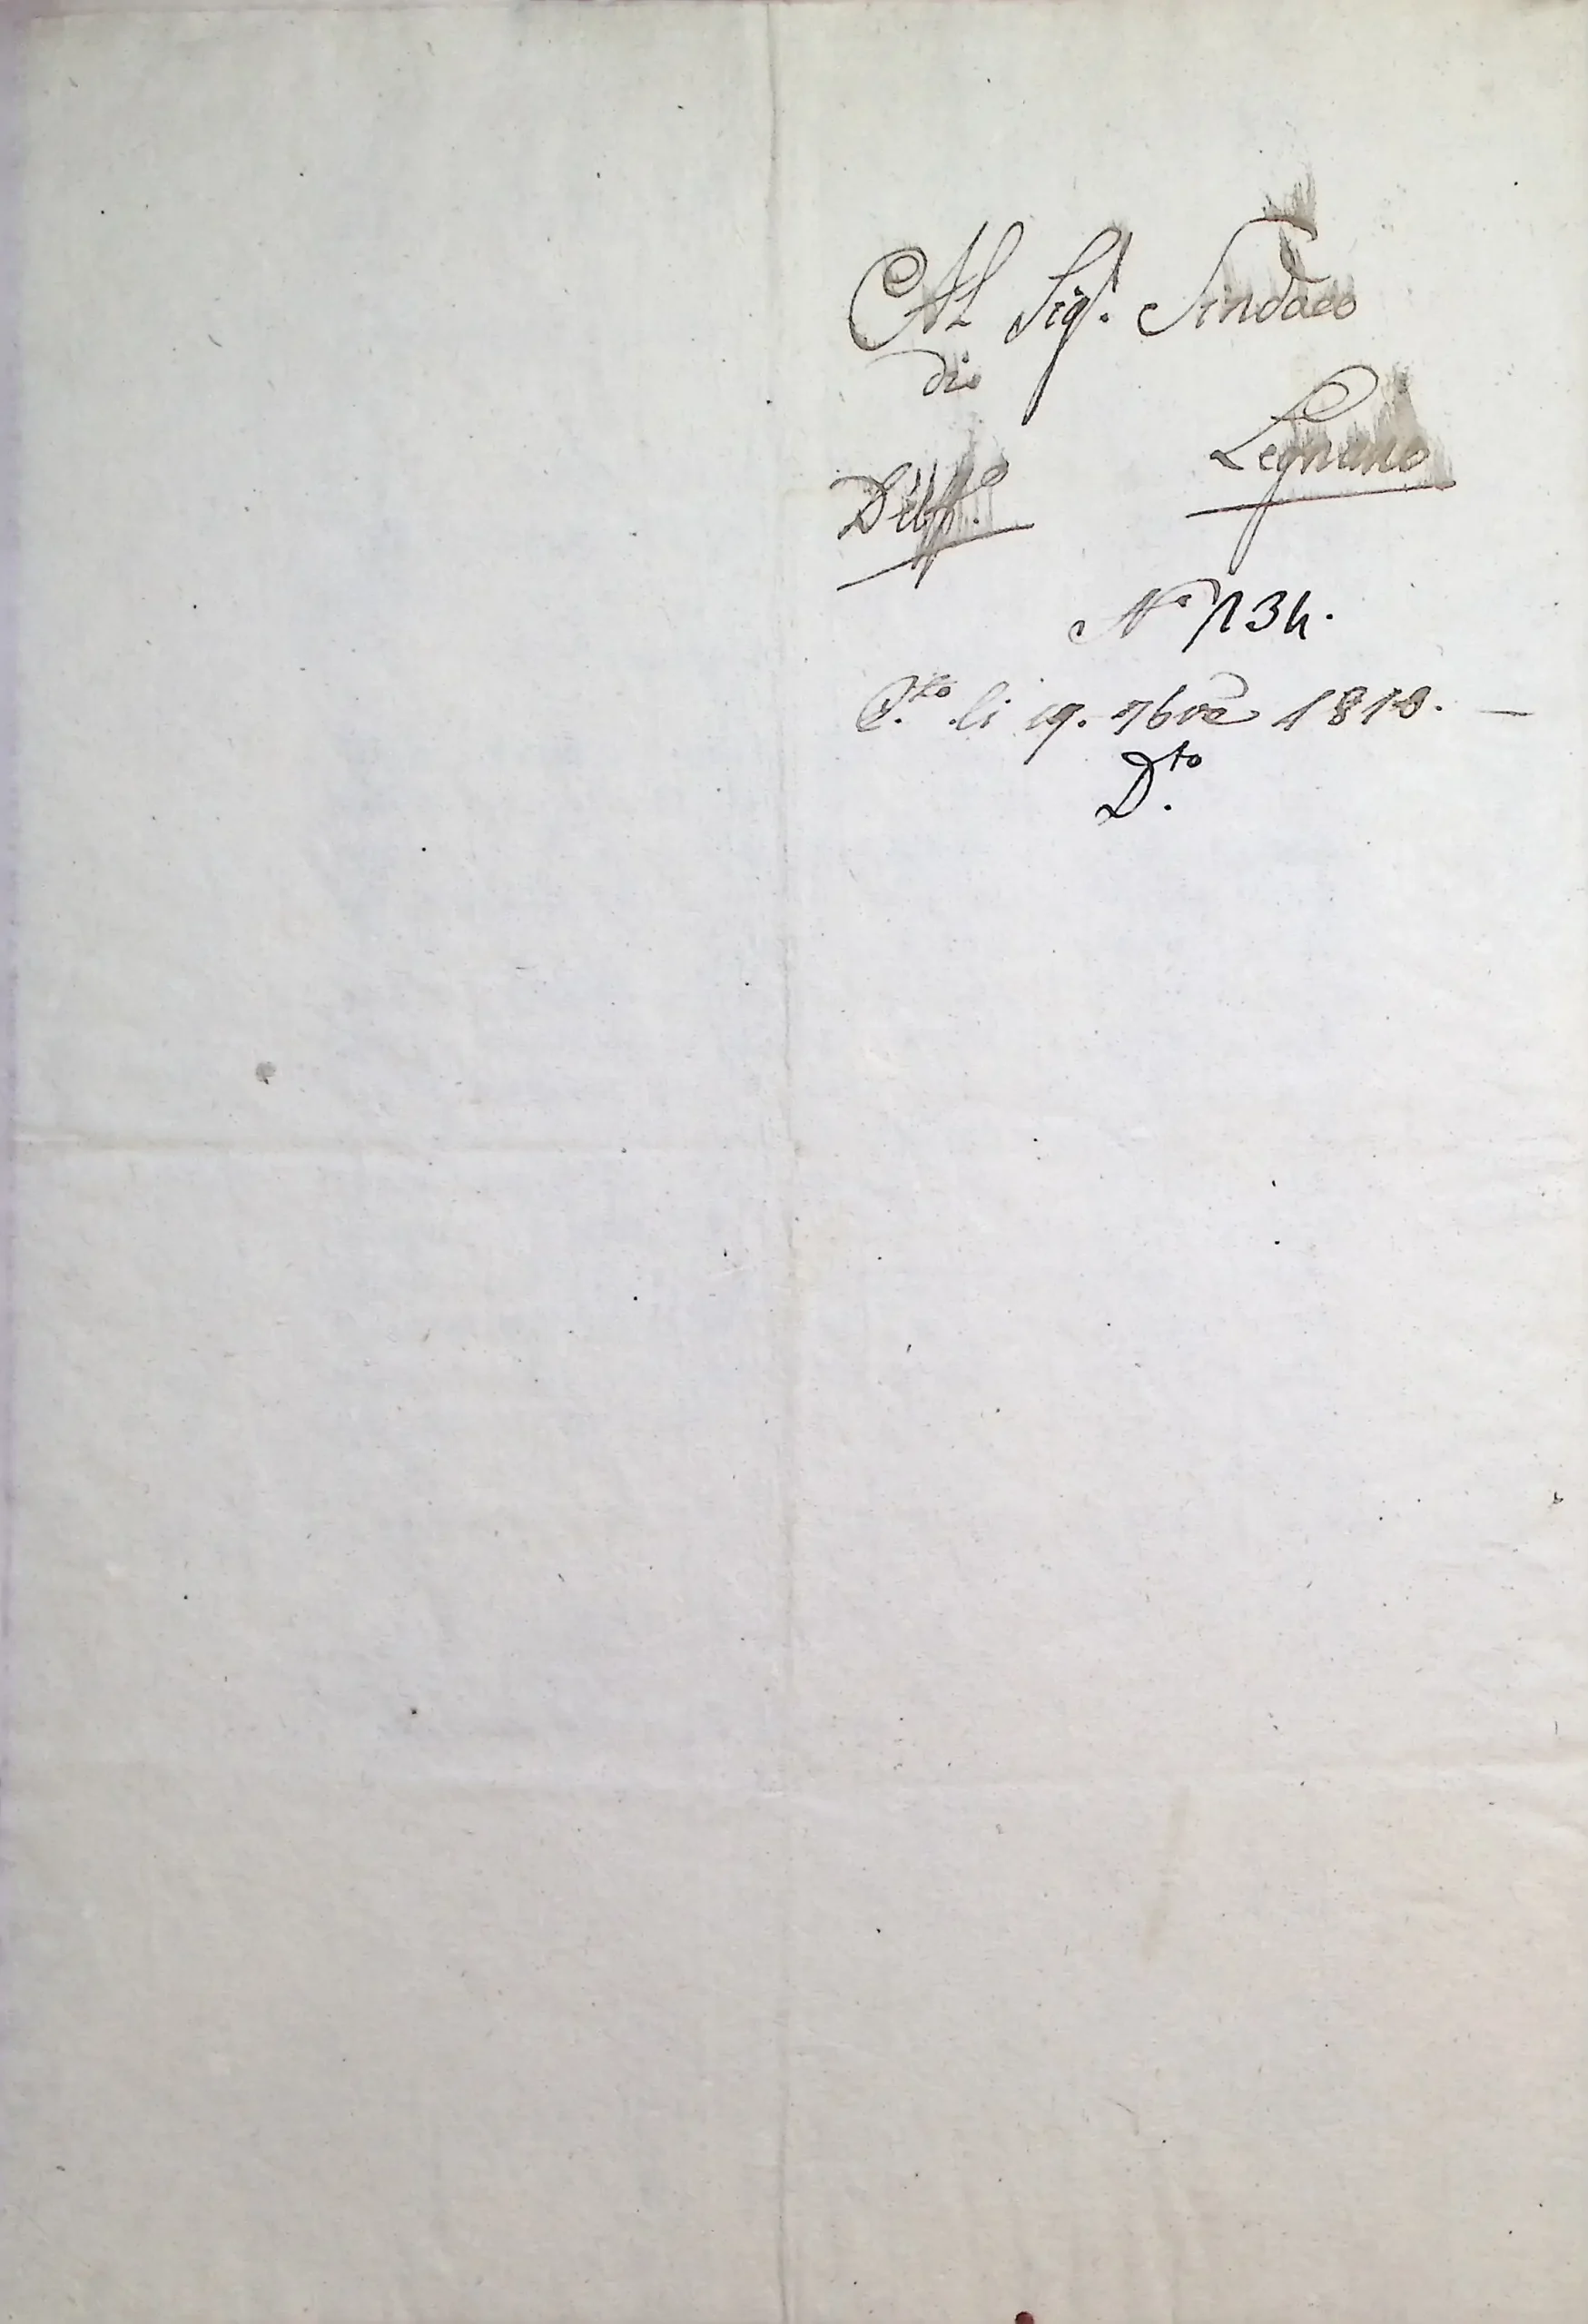 Al Sig.r Sindaco
di
Legnano
N.o 134.
li 19. 7bre 1810.
D.to